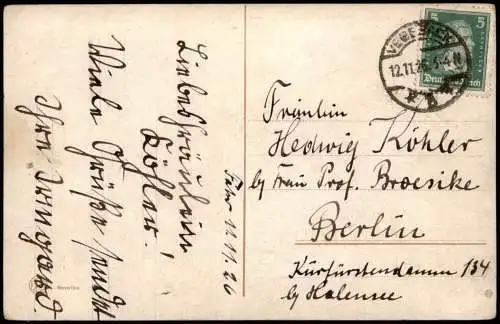 Liebes Fräulein
Köhler!
Viele Grüße sendet
Ihre Irmgard.
Fähr 11.11.26
VEGESACK
12.11.26. 3-4 N
5
Deutsches Reich
Fräulein
Hedwig Köhler
by Frau Prof. Broesike
Berlin
Kurfürstendamm 134
by Halensee